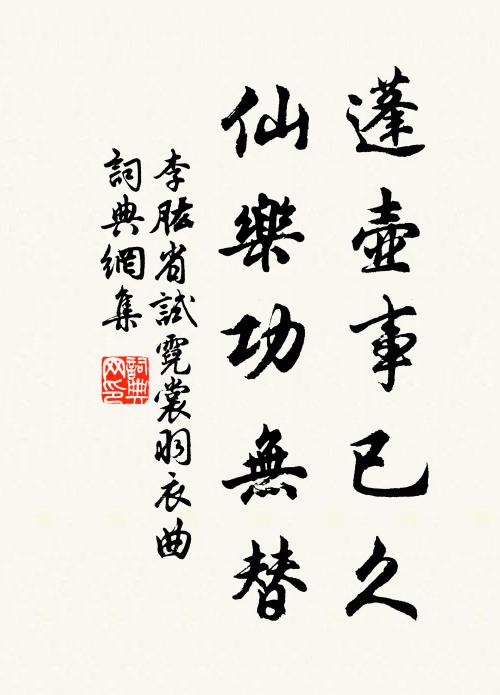 蓬壺事已久
仙樂功無替
李肱省試霓裳羽衣曲
詞典網集
詞典
网印